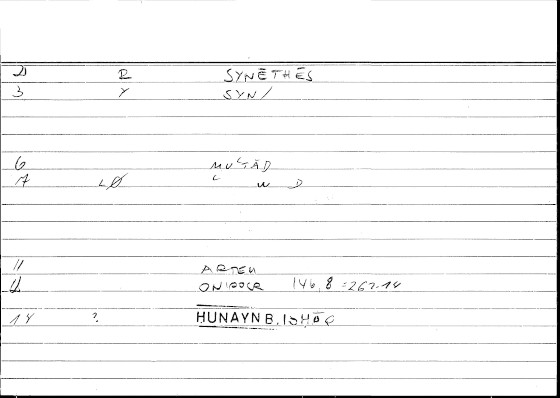 2 R SYNĒTHĒS
3 Y SYN/
6 MUʿTĀD
7 LØ ʿ W D
11 ARTEM
12 ONIROCR 146,8 = 267.14
14 ? HUNAYN B. ISḤĀQ